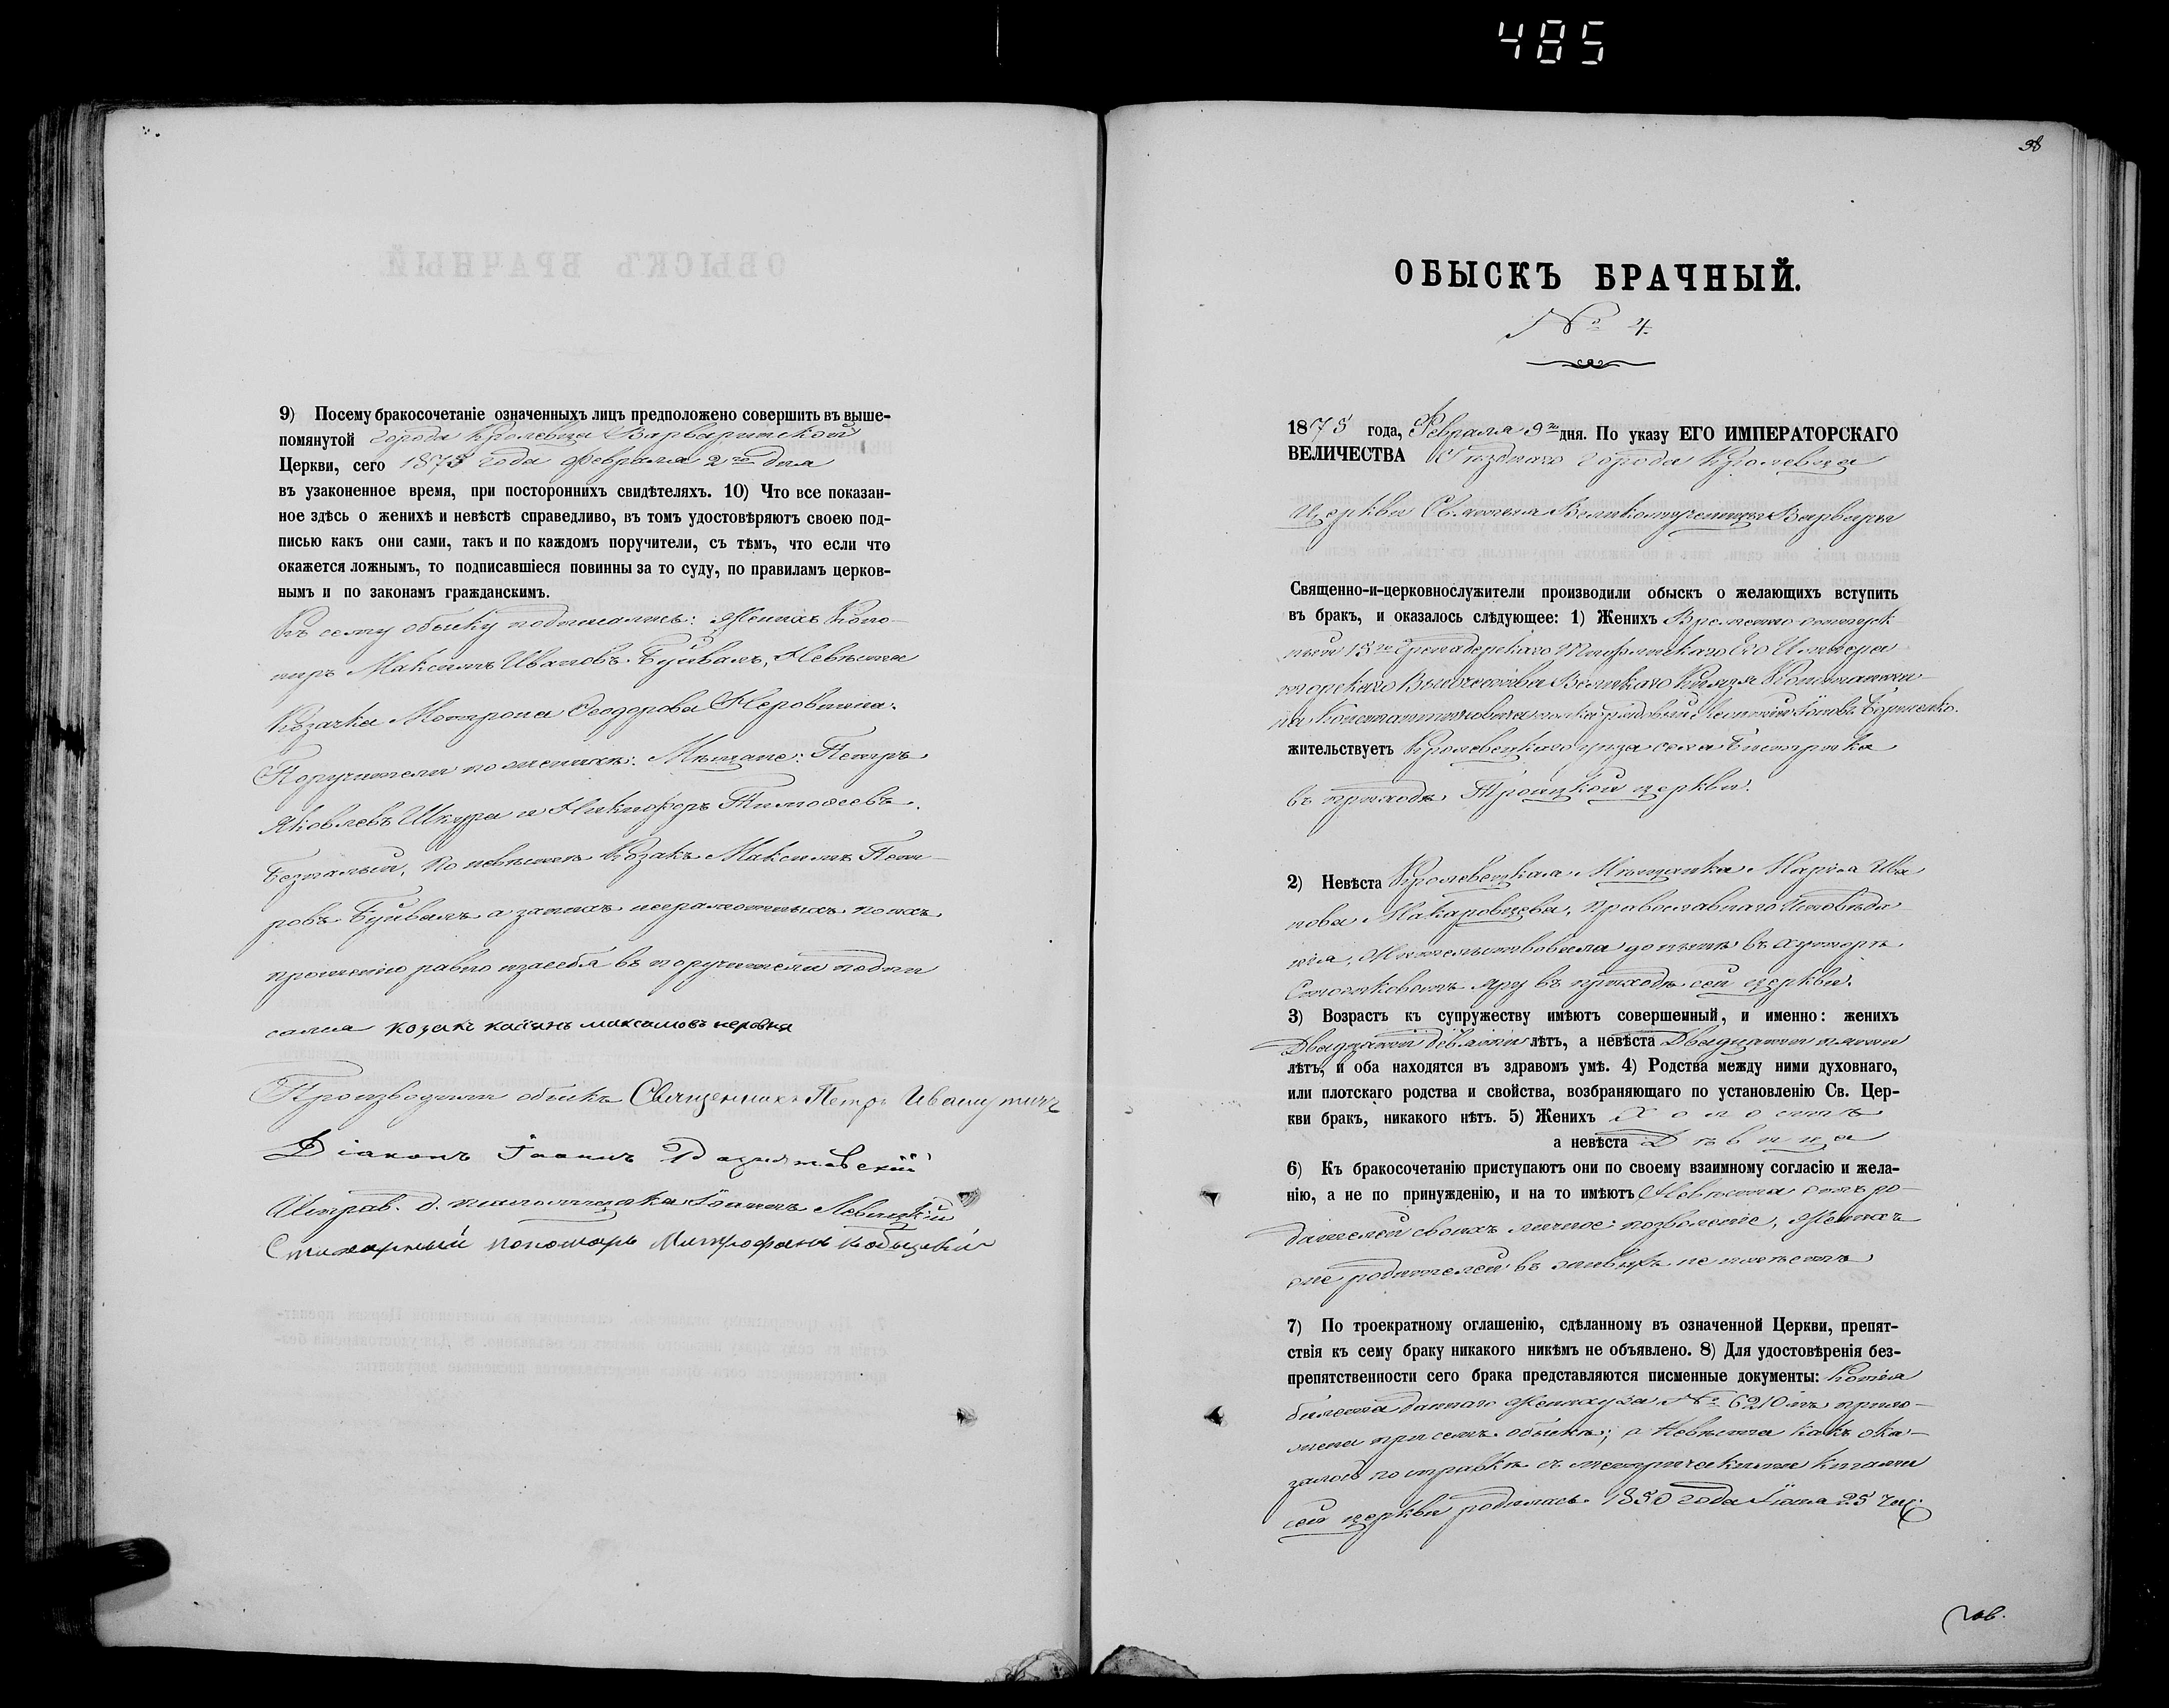 485
9) Посему бракосочетаніе означенныхъ лицъ предположено совершить въ выше-
помянутой города Кролевца Варваринской
Церкви, сего 1875 года февраля 2го дня
въ узаконенное время, при постороннихъ свидѣтеляхъ. 10) Что все показан-
ное здѣсь о женихѣ и невѣстѣ справедливо, въ томъ удостовѣряютъ своею под-
писью какъ они сами, такъ и по каждомъ поручители, съ тѣмъ, что если что
окажется ложнымъ, то подписавшіеся повинны за то суду, по правиламъ церков-
нымъ и по законамъ гражданскимъ.
Къ сему обыску подписались: Женихъ
Максимъ Ивановъ Буйвалъ, Невѣста
Козачка Матрона Ѳеодорова Неровнина.
Поручители по женихѣ: Мѣщане: Петръ
Яковлевъ Шкура и Никифоръ Тимоѳеевъ
Безпалый, По невѣстѣ Козакъ Максимъ Пет-
ровъ Буйвалъ а за нихъ неграмотныхъ по ихъ
прошенію равно и за себя въ поручители подпи
сался козакъ касіянъ максимовъ неровня
Производили обыскъ Священникъ Петръ Ивашутичъ
Діаконъ Іоаннъ
Исправ. д. псаломщика Іоаннъ Левицкій
Стихарный пономарь Митрофанъ
38
ОБЫСКЪ БРАЧНЫЙ.
№ 4.
1875 года, Февраля 9го дня. По указу ЕГО ИМПЕРАТОРСКАГО
ВЕЛИЧЕСТВА Уѣзднаго города Кролевца
Церкви Св. Великомученицы Варвары
Священно-и-церковнослужители производили обыскъ о желающихъ вступить
въ бракъ, и оказалось слѣдующее: 1) Женихъ Временно-отпуск
ный 15го Гренадерскаго Тифлискаго Его Импера
торскаго Высочества Великаго Князя Константи-
на Константиновича полка рядовый
жительствуетъ Кролевецкаго уѣзда села Быстрика
въ приходѣ Троицкой церкви.
2) Невѣста Кролевецкая Мѣщанка Марія Ива
нова Макаровцева, Православнаго Исповѣда
нія, Жительствовала до нынѣ въ хуторѣ
Яру въ приходѣ сей церкви.
3) Возрастъ къ супружеству имѣютъ совершенный, и именно: женихъ
Двадцати девяти лѣтъ, а невѣста Двадцати пяти
лѣтъ, и оба находятся въ здравомъ умѣ. 4) Родства между ними духовнаго,
или плотскаго родства и свойства, возбраняющаго по установленію Св. Цер-
кви бракъ, никакого нѣтъ. 5) Женихъ Холостъ
а невѣста Дѣвица
6) Къ бракосочетанію приступаютъ они по своему взаимному согласію и жела-
нію, а не по принужденію, и на то имѣютъ Невѣста отъ ро-
дителей своихъ личное позволеніе, Женихъ
же родителей въ живыхъ не имѣетъ
7) По троекратному оглашенію, сдѣланному въ означенной Церкви, препят-
ствія къ сему браку никакого никѣмъ не объявлено. 8) Для удостовѣренія без-
препятственности сего брака представляются писменные документы: Копія
билета даннаго Жениху за № 6210мъ прило-
жена при семъ обыскѣ; а Невѣста какъ ока-
залось по справкѣ съ метрическими книгами
сей церкви родилась 1850 года 25 чис.